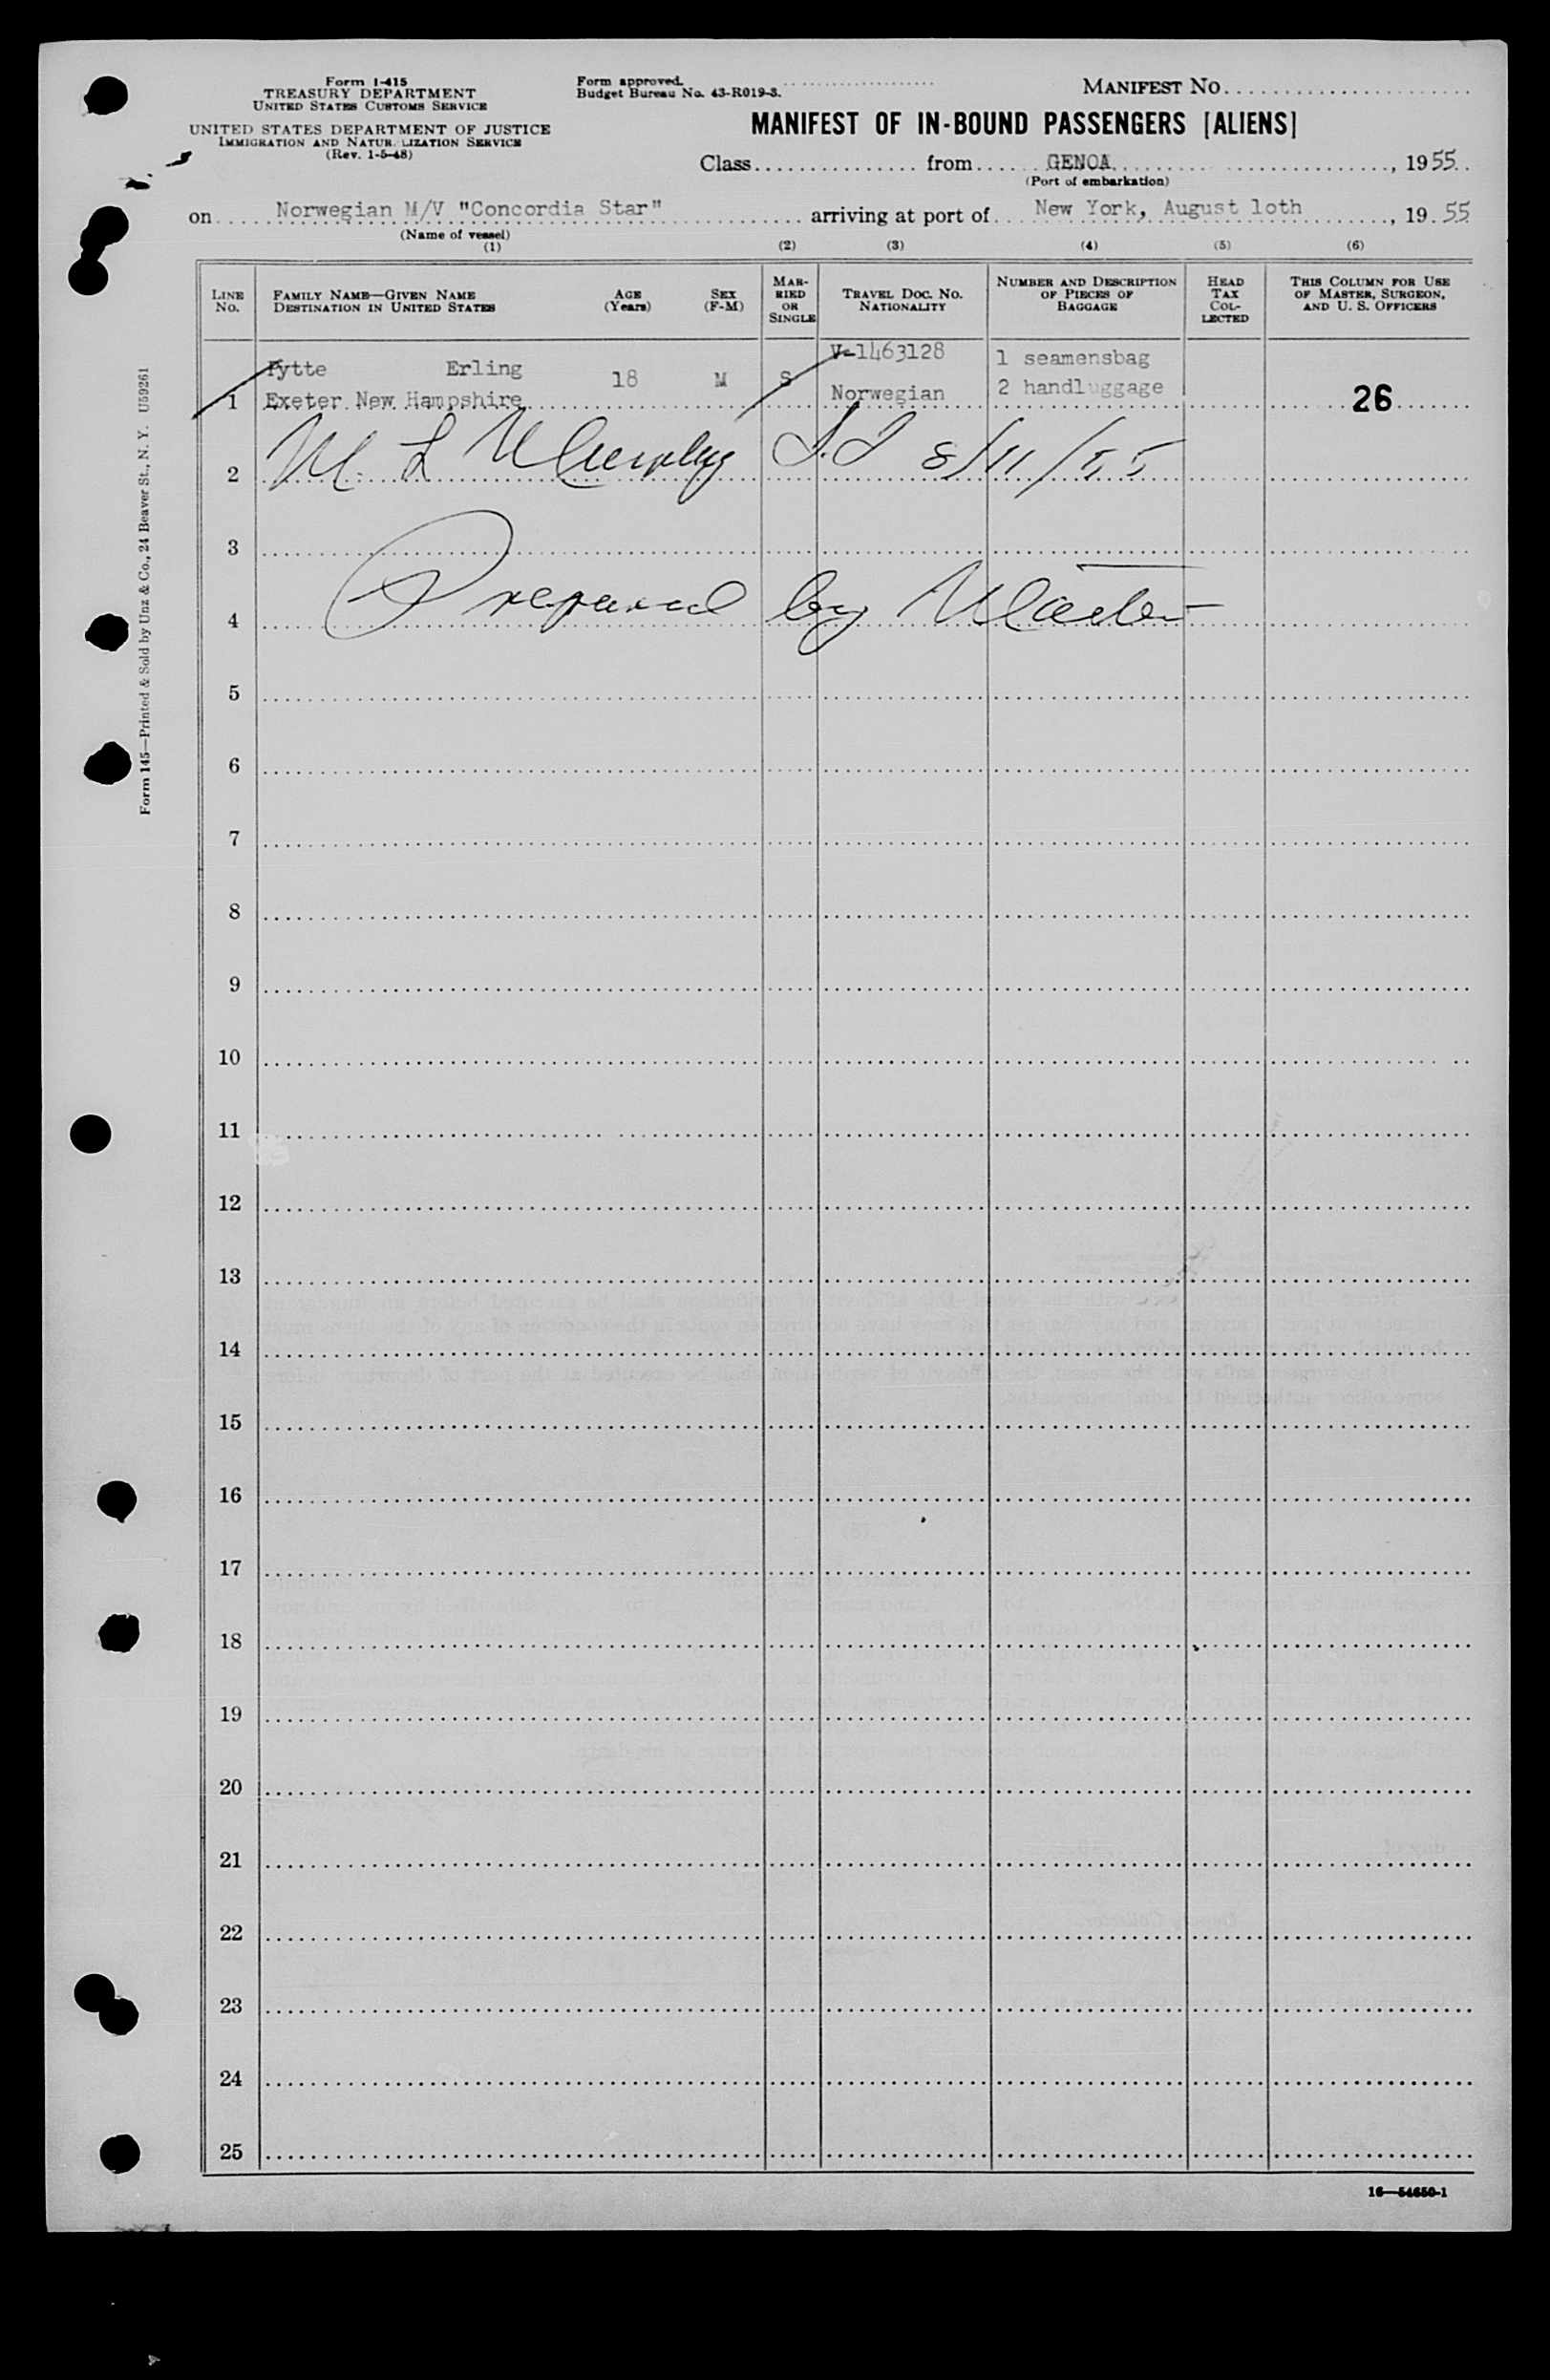 Form I-415
TREASURY DEPARTMENT
UNITED STATES CUSTOMS SERVICE
UNITED STATES DEPARTMENT OF JUSTICE
IMMIGRATION AND NATURALIZATION SERVICE
(Rev. 1-5-48)
Form approved.
Budget Bureau No. 43-R019-3.
MANIFEST NO.
MANIFEST OF IN-BOUND PASSENGERS [ALIENS]
Class from GENOA, 1955
(Port of embarkation)
on Norwegian M/V "Concordia Star" arriving at port of New York, August 1oth, 1955
(Name of vessel)
(1) (2) (3) (4) (5) (6)
LINE NO. FAMILY NAME—GIVEN NAME DESTINATION IN UNITED STATES AGE (Years) SEX (F-M) MARRIED OR SINGLE TRAVEL DOC. NO. NATIONALITY NUMBER AND DESCRIPTION OF PIECES OF BAGGAGE HEAD TAX COLLECTED THIS COLUMN FOR USE OF MASTER, SURGEON, AND U. S. OFFICERS
Fytte Erling 18 M S V-1463128 1 seamensbag
1 Exeter New Hampshire Norwegian 2 handluggage 26
2 M. L Murphy 8/11/55
3
4 Prepared by Master
5
6
7
8
9
10
11
12
13
14
15
16
17
18
19
20
21
22
23
24
25
16—54650-1
Form 145—Printed & Sold by Unz & Co., 24 Beaver St., N. Y. U59261